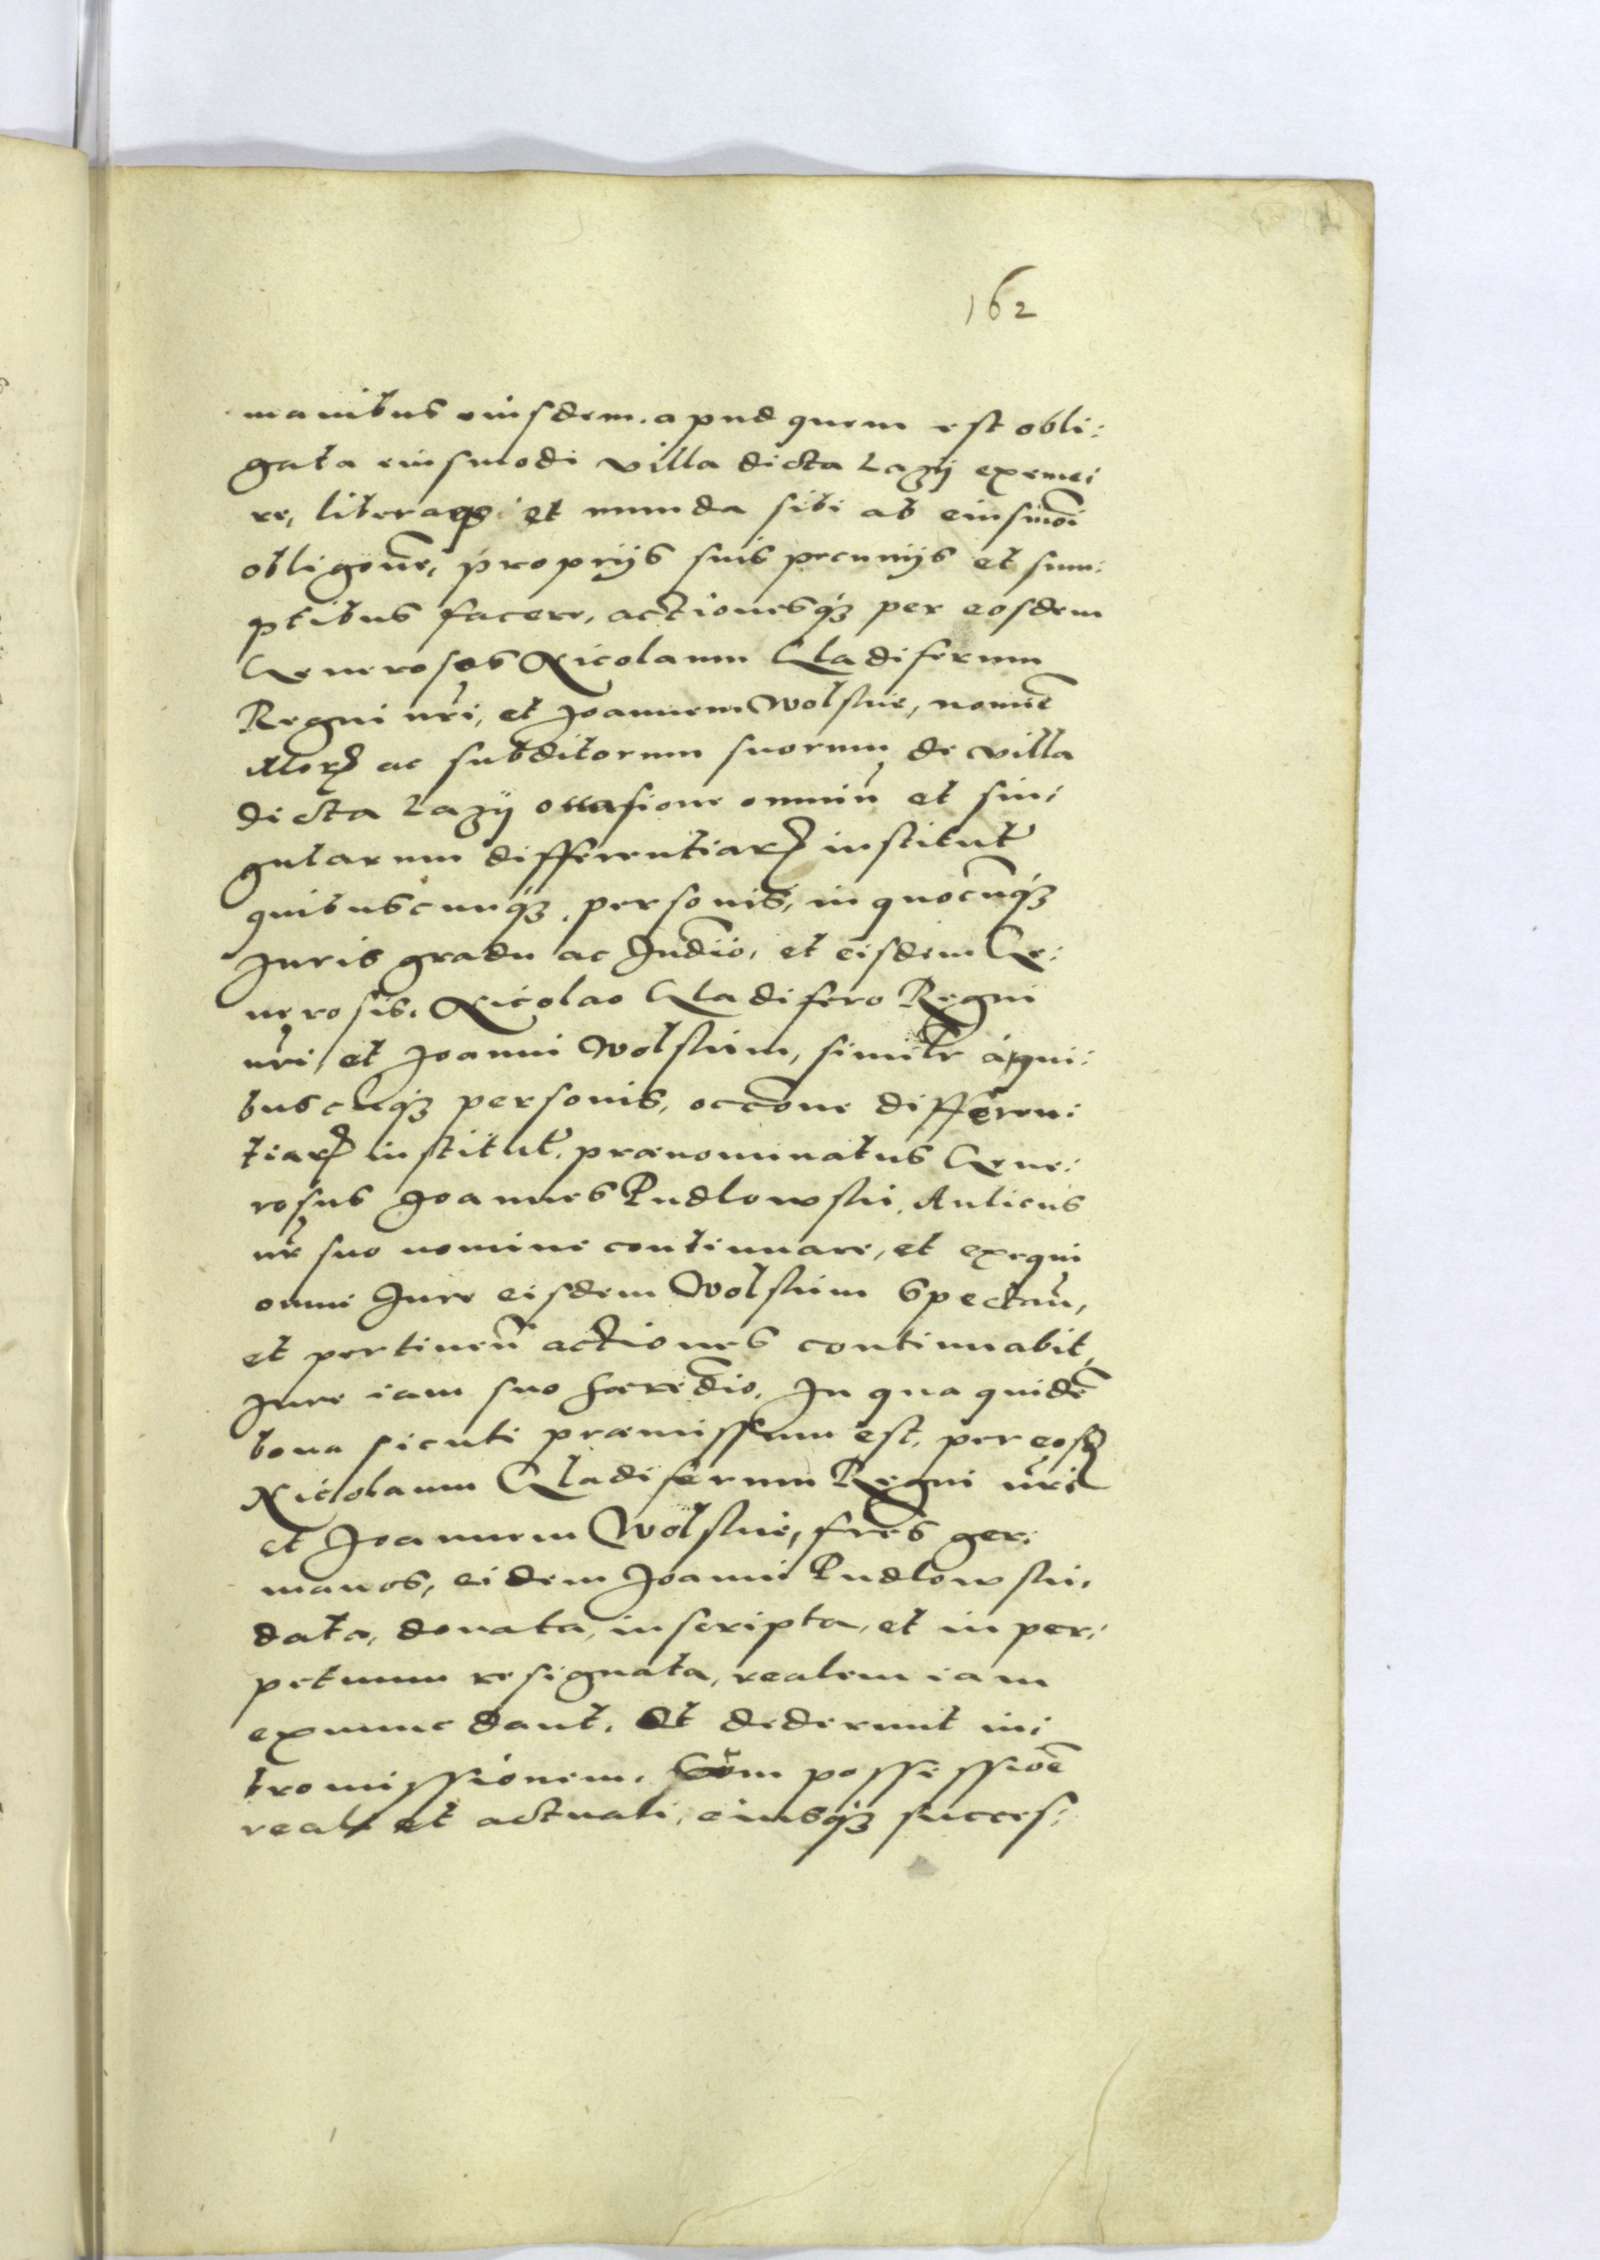 162
manibus eiusdem. apud quem est obli:
gata eiusmodi villa dicta Lazÿ exime:
re, liberaqȝ et munda sibi ab eiusmōi
obligōne, proprijs suis pecunijs et sum:
ptibus facere, actionesqȝ per eosdem
Generosos Nicolaum Gladiferum
Regni nr̄i, et Joannem Wolskie, nomiē
illorꝝ ac subditorum suorum de villa
dicta Lazÿ occasione omniū et sin:
gularum differentiarꝝ institut̄
quibuscunqȝ personis, in quocūqȝ
Juris gradu ac Judīio, et eisdem Ge:
nerosis, Nicolao Gladifero Regni
nr̄i, et Joanni Wolskim, similr̄ à qui:
buscūqȝ personis, occōne differen:
tiarꝝ institut̄. prænominatus Gene:
rosus Joannes Pudlowski, Aulicus
nr̄ suo nomine continuare, et exequi
omni Jure eisdem Wolskim spectan̄,
et pertinen̄ actiones continuabit,
Jure iam suo hæredīo. In qua quidē
bona sicuti præmissum est, per eosꝺ
Nicolaum Gladiferum Regni nr̄i
et Joannem Wolskie, frēs ger:
manos, eidem Joanni Pudlowski,
data, donata, inscripta, et in per:
petuum resignata, realem iam
exnunc dant. Et dederunt in:
tromissionem. Cum possessioē
reali et actuali, eiusqȝ succes: